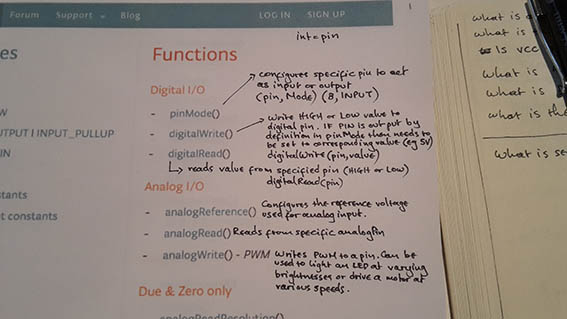 Forum Support Blog LOG IN SIGN UP
int = pin
es
Functions
configures specific pin to act
as input or output
Digital I/O
(pin, Mode) (8, INPUT)
- pinMode()
Write HIGH or Low value to
digital pin. IF PIN is output by
- digitalWrite()
definition in pinMode then needs to
be set to corresponding value (eg 5V)
UTPUT I INPUT_PULLUP
digitalWrite (pin, value)
IN
- digitalRead()
reads value from specified pin (HIGH or Low)
digitalRead (pin)
stants
Analog I/O
t constants
- analogReference() Configures the reference voltage
used for analog input.
- analogRead() Reads from specific analogPin
- analogWrite() - PWM Writes PWM to a pin. Can be
used to light an LED at varying
brightnesses or drive a motor at
various speeds.
Due & Zero only
analogReadResolution()
what is
what is
Is vcc
what is
what is
what is the
what is se